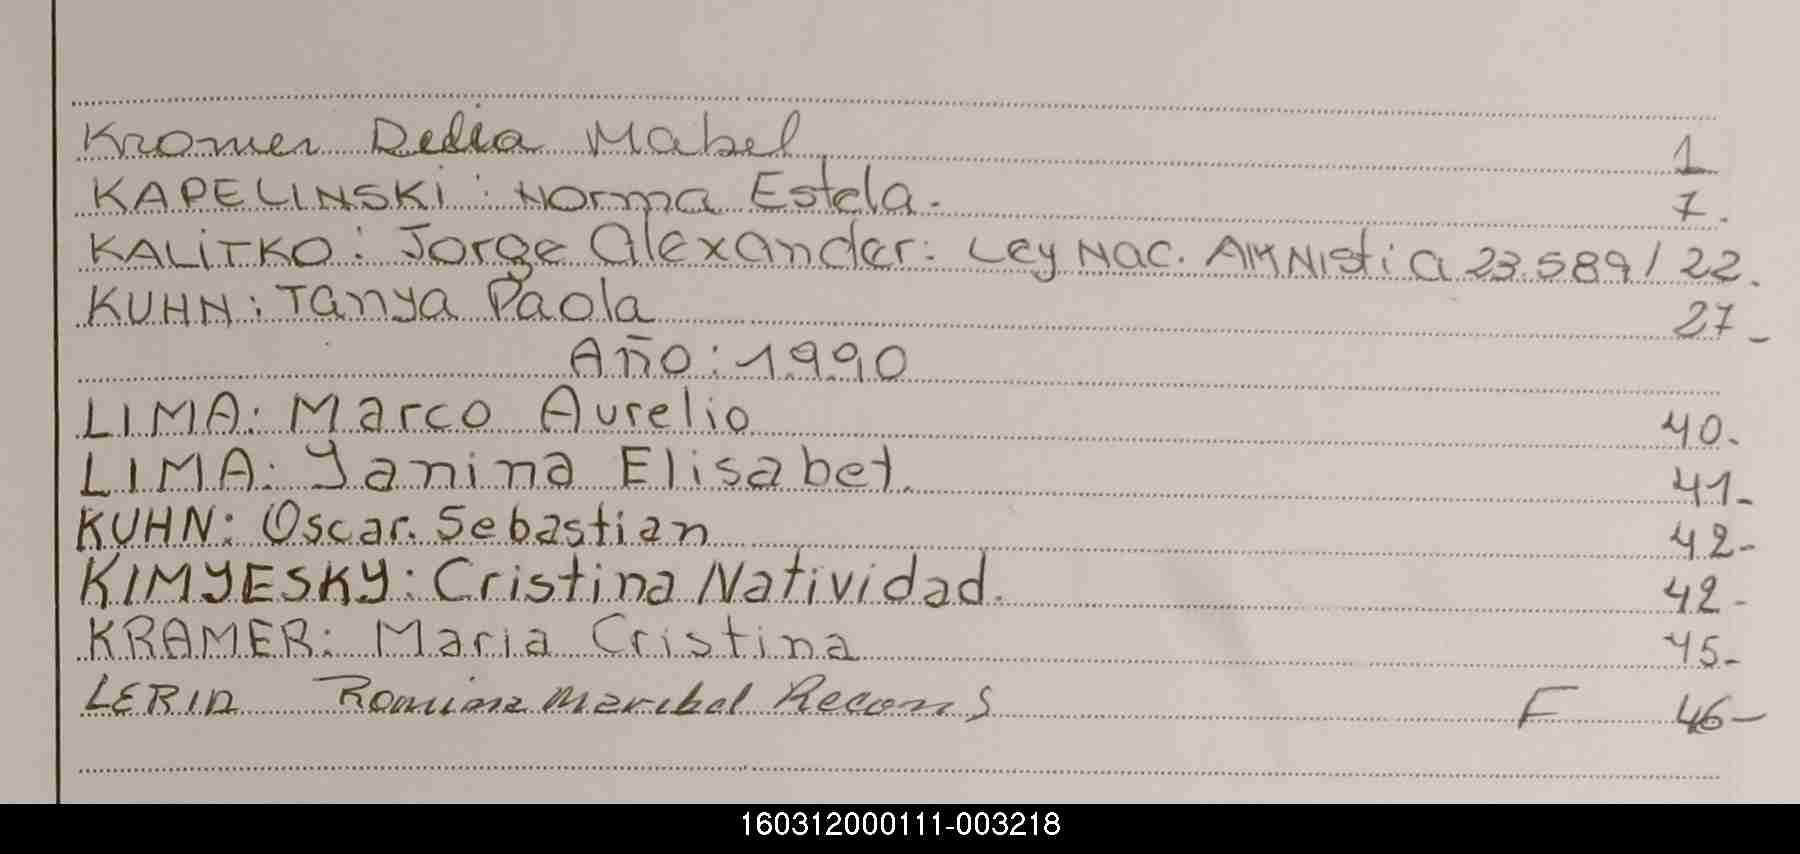 Kromer Delia Mabel 1
KAPELINSKI: Norma Estela. 7.
KALITKO: Jorge Alexander: Ley NAC. AMNistiA 23.589/ 22.
KUHN: Tanya Paola 27_
AÑO: 1.9.9.0
LIMA: Marco Aurelio 40.
LIMA: Yanina Elisabet. 41-
KUHN: Oscar. Sebastian 42-
KIMYESKY: Cristina Natividad. 42-
KRAMER: Maria Cristina 45-
LERIA Romina Maribel F 46-
160312000111-003218